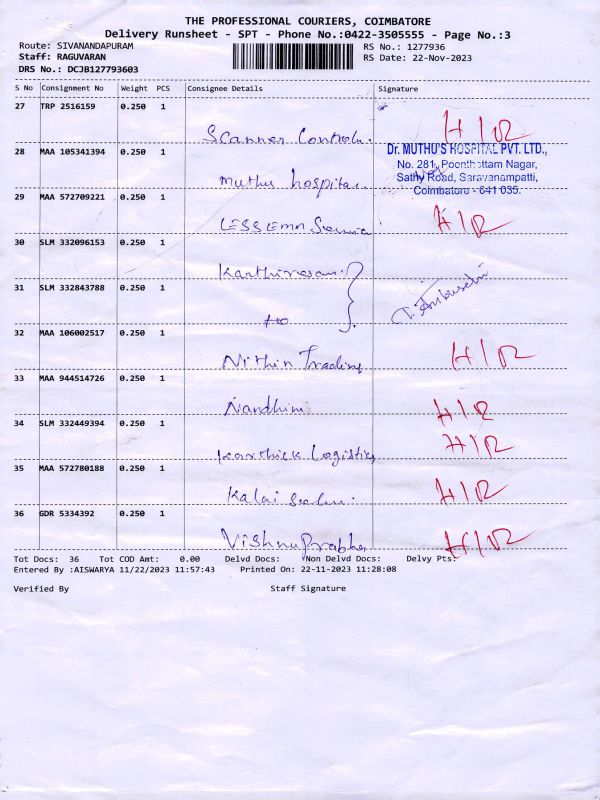 THE PROFESSIONAL COURIERS, COIMBATORE
Delivery Runsheet - SPT - Phone No.:0422-3505555 - Page No.:3
Route: SIVANANDAPURAM RS No.: 1277936
Staff: RAGUVARAN RS Date: 22-Nov-2023
DRS No.: DCJB127793603
S No Consignment No Weight PCS Consignee Details Signature
27 TRP 2516159 0.250 1
Scanner Controls. H/R
28 MAA 105341394 0.250 1 Dr. MUTHU'S HOSPITAL PVT. LTD.,
No. 281, Poonthottam Nagar,
muthus hospital Sathy Road, Saravanampatti,
Coimbatore - 641 035.
29 MAA 572709221 0.250 1
H/R
30 SLM 332096153 0.250 1
31 SLM 332843788 0.250 1
32 MAA 106002517 0.250 1
Nithin Trading H/R
33 MAA 944514726 0.250 1
Nandhini H/R
34 SLM 332449394 0.250 1
Karthick Logistics H/R
35 MAA 572780188 0.250 1
Kalai H/R
36 GDR 5334392 0.250 1
Vishnu Prabha H/R
Tot Docs: 36 Tot COD Amt: 0.00 Delvd Docs: Non Delvd Docs: Delvy Pts:
Entered By :AISWARYA 11/22/2023 11:57:43 Printed On: 22-11-2023 11:28:08
Verified By Staff Signature